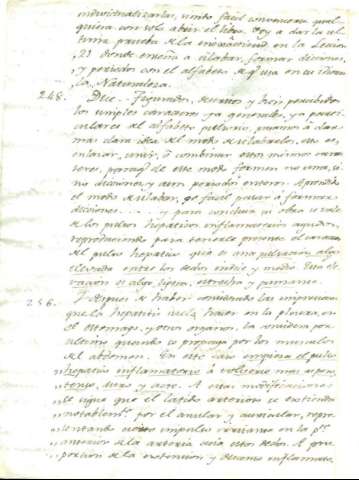 individualizarlas, visto facil convencera qual
quiera con solo abrir el libro. Voy a dar la ul
tima prueba de la en la Leccion
23 donde enseña a silabar, formar dicciones,
y periodos con el alfabeto de q.e usa en su idioma
la Naturaleza.
248. Dice Figurados, escritos y bien percibidos
los simples caracteres ya generales, ya parti
culares del alfabeto pulsario, pasamos a dar
mas clara idea del modo de silabarlos, esto es,
enlazar, unir, o combinar estos mismos carac
teres, para q.e de este modo formen no una, si
no dicciones, y aun periodos enteros. Aprendido
el modo de silabar, es facil pasar a formar
dicciones..... y para concluir su obra se vale
de los pulsos hepaticos inflamatorios agudos,
reproduciendo para tenerle presente el caracter
del pulso hepatico que es una pulsacion algo
elevada entre los dedos indice y medio. Esta ele
vacion es algo tipica, estrecha y permane.
256. Despues de haber considerado las impresiones
que la hepatitis suele hacer en la pleura, en
el estomago, y otros organos, la considera por
ultimo quando se propaga por los musculos
del abdomen. En este caso empieza el pulso
hepatico inflamatorio a volverse mas a
tenso, duro y acre. A estas modificaciones
se sigue que el latido arterioso se extiende
notablem.te por el anular y auricular, repre
sentando cierto impulso en la p.te
anterior de la arteria acia estos dedos. A pro
porcion de la extension y dureza inflamato